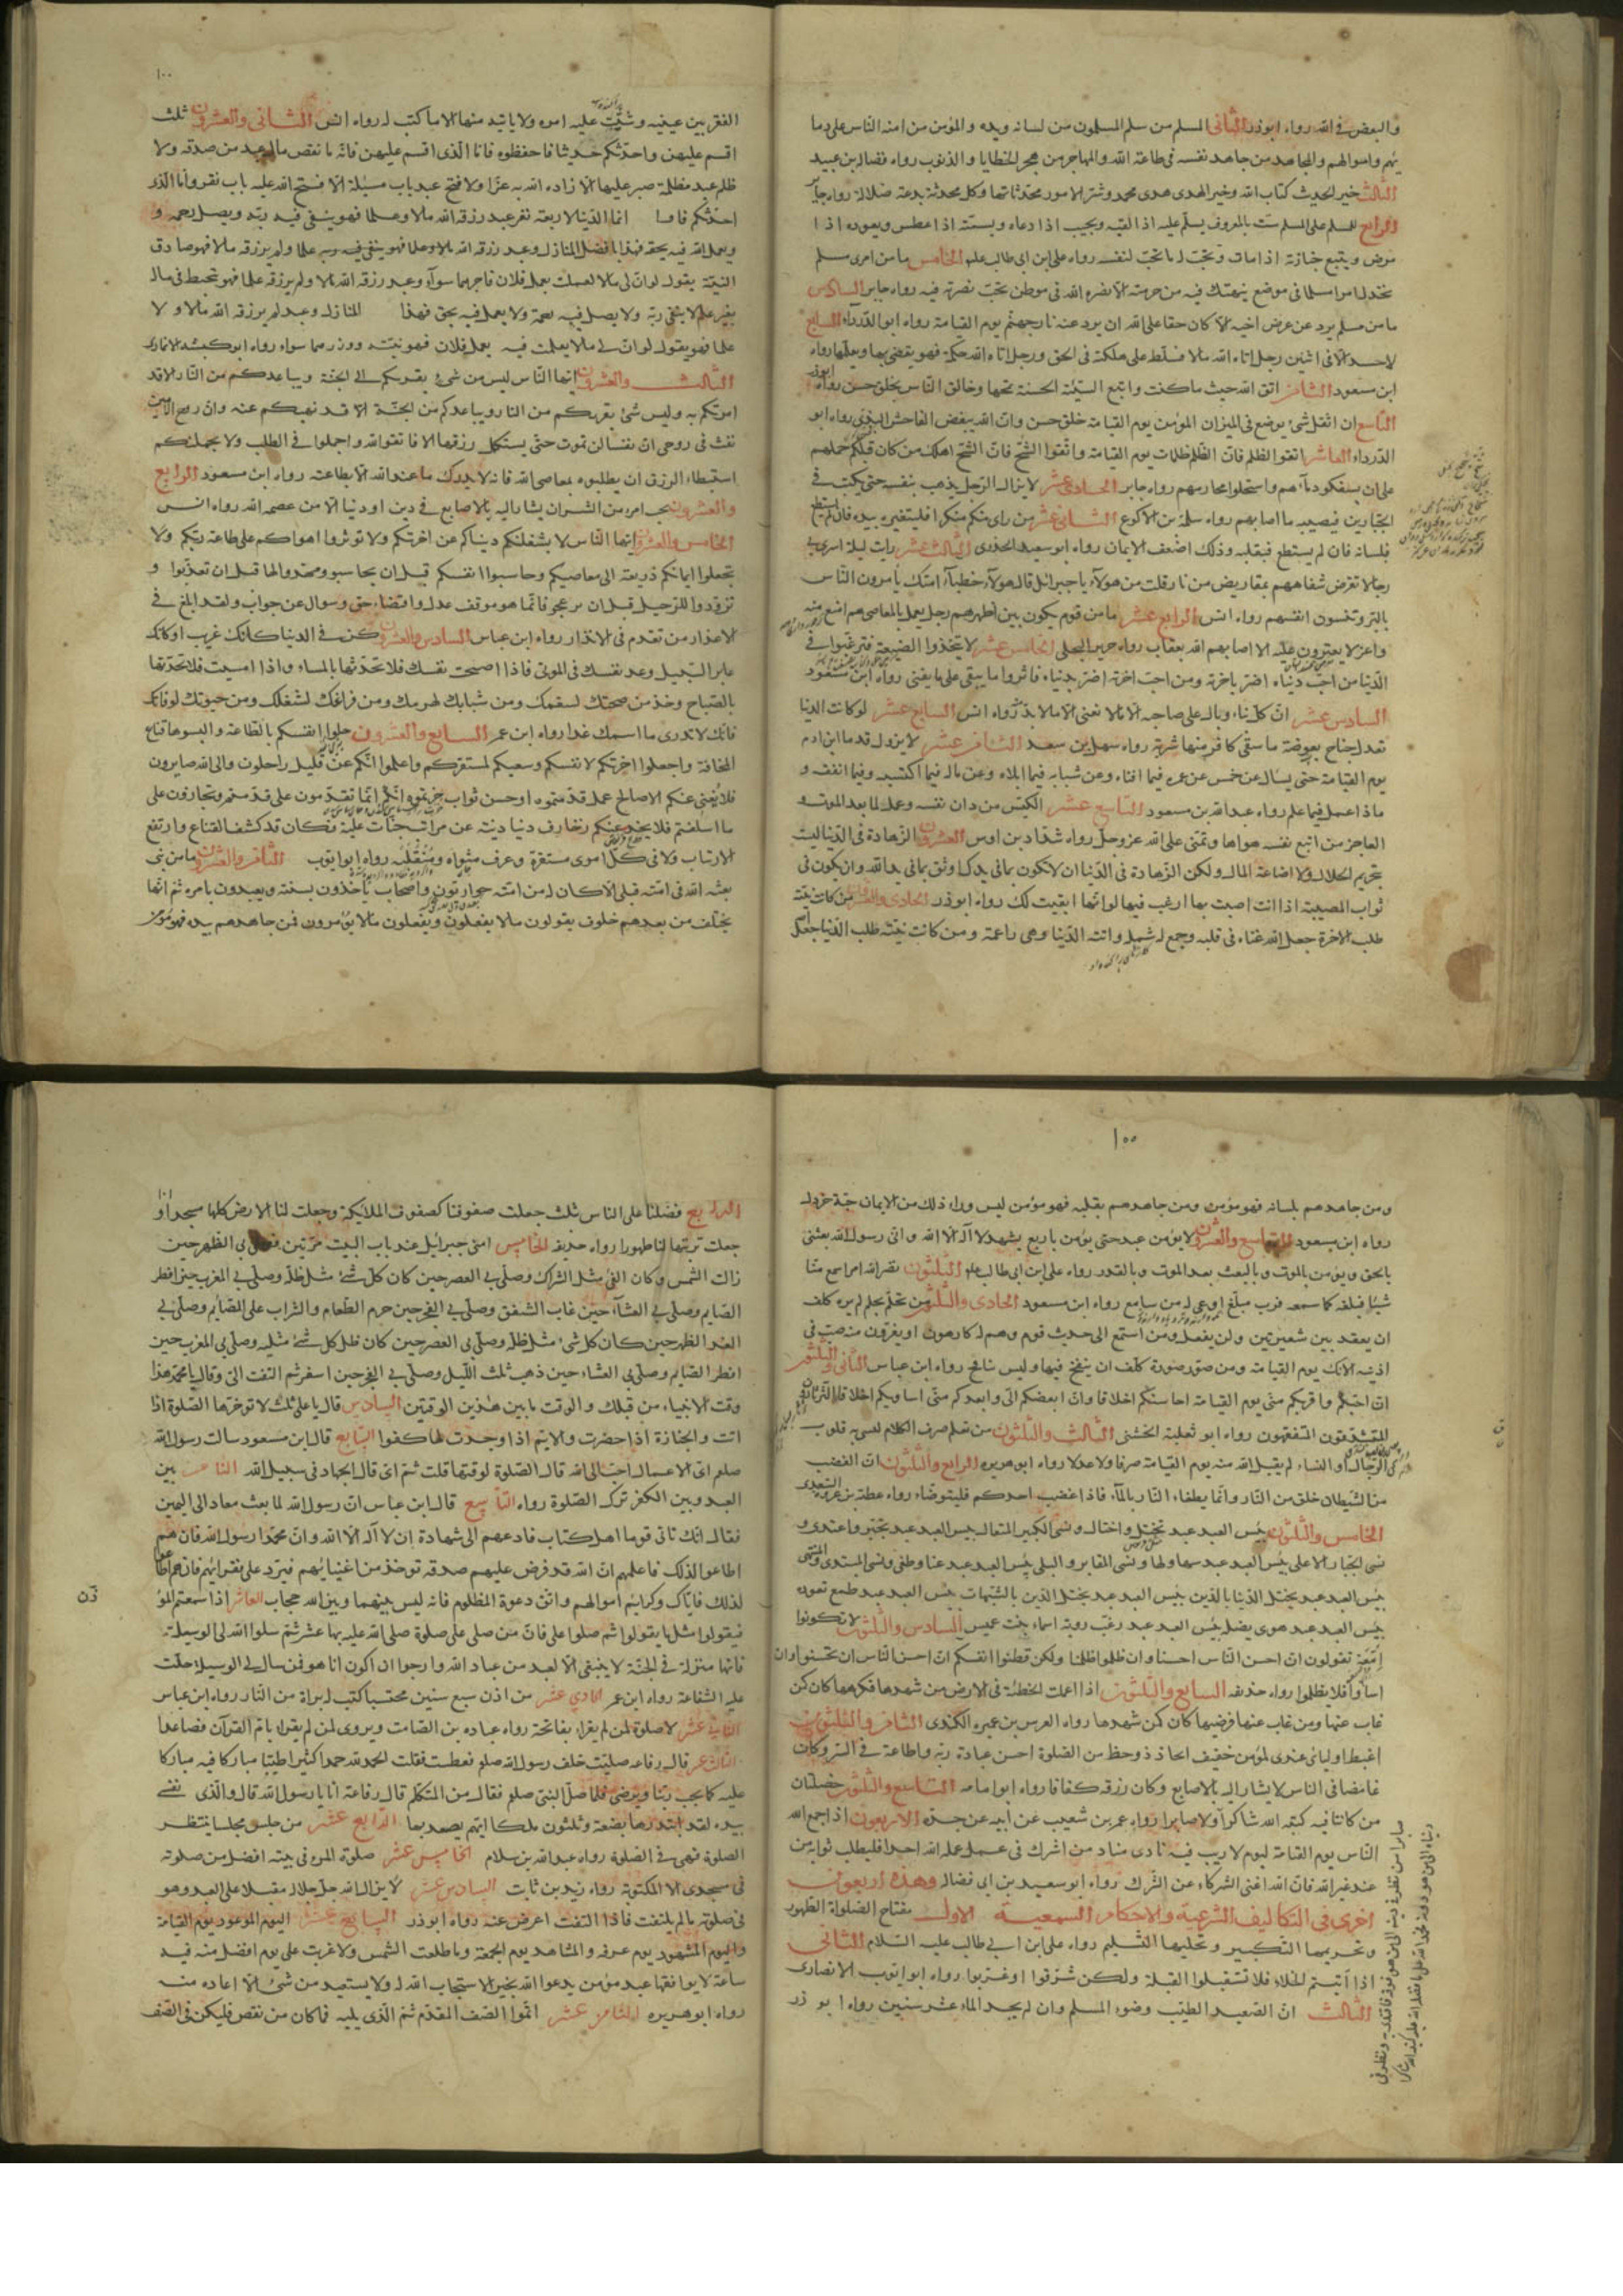 والبعض فى الله رواه ابوذر الثانى المسلم من سلم المسلمون من لسانه ويده والمؤمن من امنه الناس على دما
ئهم واموالهم والمجاهد من جاهد نفسه فى طاعة الله والمهاجر من هجر الخطايا والذنوب رواه فضاله بن عبيد
الثالث خير الحديث كتاب الله وخير الهدى هدى محمد وشر الامور محدثاتها وكل محدثة بدعة ضلالة رواه جابر
الرابع للمسلم على المسلم ست بالمعروف يسلم عليه اذا لقيه ويجيب اذا دعاه ويسمته اذا عطس ويعوده اذا
مرض ويتبع جنازته اذا مات ويحب له ما يحب لنفسه رواه على ابن ابى طالب الخامس ما من امرئ مسلم
يخذل امرا مسلما فى موضع ينهتك فيه من حرمته الا نصره الله فى موطن يحب نصرته فيه رواه جابر السادس
ما من مسلم يرد عن عرض اخيه الا كان حقا على الله ان يرد عنه نار جهنم يوم القيامة رواه ابو الدرداء السابع
لا حسد الا فى اثنين رجل اتاه الله مالا فسلط على هلكته فى الحق ورجل اتاه الله حكمة فهو يقضى بها ويعلمها رواه
ابن مسعود الثامن اتق الله حيث ما كنت واتبع السيئة الحسنة تمحها وخالق الناس بخلق حسن رواه ابوذر
التاسع ان اثقل شئ يوضع فى الميزان المؤمن يوم القيامة خلق حسن وان الله يبغض الفاحش البذى رواه ابو
الدرداء العاشر اتقوا الظلم فان الظلم ظلمات يوم القيامة واتقوا الشح فان الشح اهلك من كان قبلكم حملهم
على ان يسفكوا دماءهم واستحلوا محارمهم رواه جابر الحادى عشر لا يزال الرجل يذهب بنفسه حتى يكتب فى
الجبارين فيصيبه ما اصابهم رواه سلمة بن الاكوع الثانى عشر من راى منكم منكرا فليغيره بيده فان لم يستطع
فلسانه فان لم يستطع فبقلبه وذلك اضعف الايمان رواه ابو سعيد الخدرى الثالث عشر رايت ليلة اسرى بى
رجالا تقرض شفاههم بمقاريض من نار قلت من هولاء يا جبرائيل قال هولاء خطباء امتك يامرون الناس
بالبر وتنسون انفسهم رواه انس الرابع عشر ما من قوم يكون بين اظهرهم رجل يعمل بالمعاصى هم امنع منه
واعز لا يغيرون عليه الا اصابهم الله بعقاب رواه جرير البجلى الخامس عشر لا تتخذوا الضيعة فترغبوا فى
الدنيا من احب دنياه اضر باخرته ومن احب اخرته اضر بدنياه فاثروا ما يبقى على ما يفنى رواه ابن مسعود
السادس عشر ان كل بناء وبال على صاحبه الا ما لا يعنى الا ما لا بد رواه انس السابع عشر لو كانت الدنيا
تعدل جناح بعوضة ما سقى كافر منها شربة رواه سهل بن سعد الثامن عشر لا يزول قدما ابن ادم
يوم القيامة حتى يسال عن خمس عن عمره فيما افناه وعن شبابه فيما ابلاه وعن ماله فيما اكتسبه وفيما انفقه و
ماذا عمل فيما علم رواه عبد الله بن مسعود التاسع عشر الكيس من دان نفسه وعمل لما بعد الموت و
العاجز من اتبع نفسه هواها وتمنى على الله عز وجل رواه شداد بن اوس العشرون الزهادة فى الدنيا ليست
بتحريم الحلال ولا اضاعة المال ولكن الزهادة فى الدنيا ان لا تكون بما فى يدك اوثق بما فى يد الله وان يكون فى
ثواب المصيبة اذا انت اصبت بها ارغب فيها لو انها ابقيت لك رواه ابوذر الحادى والعشرون من كانت نيته
طلب الاخرة جعل الله غناه فى قلبه وجمع له شمله واتته الدنيا وهى راغمة ومن كانت نيته طلب الدنيا جعل
١٠٠
الفقر بين عينيه وشتت عليه امره ولا ياتيه منها الا ما كتب له رواه انس الثانى والعشرون ثلث
اقسم عليهن واحدثكم حديثا فاحفظوه فاما الذى اقسم عليهن فانه ما نقص مال عبد من صدقة ولا
ظلم عبد مظلمة صبر عليها الا زاده الله به عزا ولا فتح عبد باب مسئلة الا فتح الله عليه باب فقر واما الذى
احدثكم فاما انما الدنيا لاربعة نفر عبد رزقه الله مالا وعلما فهو يتقى فيه ربه ويصل رحمه و
ويعمل لله فيه بحقه فهذا بافضل المنازل وعبد رزقه الله علما ولم يرزقه مالا فهو صادق
النية يقول لو ان لى مالا لعملت بعمل فلان فاجرهما سواء وعبد رزقه الله مالا ولم يرزقه علما فهو يتخبط فى ماله
بغير علم لا يتقى ربه ولا يصل فيه رحمه ولا يعمل فيه بحق فهذا المنازل وعبد لم يرزقه الله مالا ولا
علما فهو يقول لو ان لى مالا لعملت فيه بعمل فلان فهو نيته ووزرهما سواء رواه ابو كبشه الانمارى
الثالث والعشرون ايها الناس ليس من شئ يقربكم الى الجنة ويباعدكم من النار الا قد
امرتكم به وليس شئ يقربكم من النار ويباعدكم من الجنة الا قد نهيتكم عنه وان روح الامين
نفث فى روعى ان نفسا لن تموت حتى يستكمل رزقها الا فاتقوا الله واجملوا فى الطلب ولا يحملنكم
استبطاء الرزق ان يطلبوه بمعاصى الله فانه لا يدرك ما عند الله الا بطاعته رواه ابن مسعود الرابع
والعشرون بحسب امرء من الشر ان يشار اليه بالاصابع فى دين او دنيا الا من عصمه الله رواه انس
الخامس والعشرون ايها الناس لا يشغلنكم دنياكم عن اخرتكم ولا توثروا اهواكم على طاعة ربكم ولا
تجعلوا ايمانكم ذريعة الى معاصيكم وحاسبوا انفسكم قبل ان يحاسبوا ومهدوا لها قبل ان تعذبوا و
تزودوا للرحيل قبل ان تزعجوا فانما هو موقف عدل واقتضاء حق وسوال عن جواب ولقد ابلغ فى
الاعذار من تقدم فى الانذار رواه ابن عباس السادس والعشرون كن فى الدنيا كانك غريب او كانك
عابر السبيل وعد نفسك فى الموتى فاذا اصبحت نفسك فلا تحدثها بالمساء واذا امسيت فلا تحدثها
بالصباح وخذ من صحتك لسقمك ومن شبابك لهرمك ومن فراغك لشغلك ومن حيوتك لوفاتك
فانك لا تدرى ما اسمك غدا رواه ابن عمر السابع والعشرون حلوا انفسكم بالطاعة والبسوها قناع
المخافة واجعلوا اخرتكم لانفسكم وسعيكم لمستقركم واعلموا انكم عن قليل راحلون والى الله صايرون
فلا يغنى عنكم الا صالح عمل قدمتموه او حسن ثواب حزتموه انكم انما تقدمون على قدمتم وتجازون على
ما اسلفتم فلا يخدعنكم زخارف دنيا دنية عن مراتب جنات علية فكان قد كشف القناع وارتفع
الارتياب ولاقى كل امرئ مستقره وعرف مثواه ومنقلبه رواه ابو ايوب الثامن والعشرون ما من نبى
بعثه الله فى امته قبلى الا كان له من امته حواريون واصحاب ياخذون بسنته ويعبدون بامره ثم انها
يختلف من بعدهم خلوف يقولون ما لا يفعلون ويفعلون ما لا يؤمرون فمن جاهدهم بيده فهو مؤمن
١٠٠
ومن جاهدهم بلسانه فهو مؤمن ومن جاهدهم بقلبه فهو مؤمن ليس وراء ذلك من الايمان حبة خردل
رواه ابن مسعود التاسع والعشرون لا يؤمن عبد حتى يؤمن باربع يشهد لا اله الا الله وانى رسول الله بعثنى
بالحق ويؤمن بالموت وبالبعث بعد الموت وبالقدر رواه على ابن ابى طالب الثلثون نضر الله امرا سمع منا
شيئا فبلغه كما سمعه فرب مبلغ اوعى له من سامع رواه ابن مسعود الحادى والثلثون من تحلم بحلم لم يره كلف
ان يعقد بين شعيرتين ولن يفعل ومن استمع الى حديث قوم وهم له كارهون او يفرون منه صب فى
اذنيه الانك يوم القيامة ومن صور صورة كلف ان ينفخ فيها وليس نافخ رواه ابن عباس الثانى والثلثون
ان احبكم واقربكم منى يوم القيامة احاسنكم اخلاقا وان ابغضكم الى وابعدكم منى اساويكم اخلاقا الثرثارون
المتشدقون المتفيهقون رواه ابو ثعلبة الخشنى الثالث والثلثون من تعلم صرف الكلام ليسبى به قلوب
الرجال او النساء لم يقبل الله منه يوم القيامة صرفا ولا عدلا رواه ابو هريره الرابع والثلثون ان الغضب
من الشيطان خلق من النار وانما يطفاء النار بالماء فاذا غضب احدكم فليتوضاء رواه عطية بن عروة السعدى
الخامس والثلثون بئس العبد عبد تخيل واختال ونسى الكبير المتعال بئس العبد عبد تجبر واعتدى و
نسى الجبار الاعلى بئس العبد عبد سها ولها ونسى المقابر والبلى بئس العبد عبد عتا وطغى ونسى المبتدى والمنتهى
بئس العبد عبد يختل الدنيا بالدين بئس العبد عبد يختل الدين بالشبهات بئس العبد عبد طمع تعوده
بئس العبد عبد هوى يضله بئس العبد عبد رغب روته اسماء بنت عميس السادس والثلثون لا تكونوا
امعة تقولون ان احسن الناس احسنا وان ظلموا ظلمنا ولكن وطنوا انفسكم ان احسن الناس ان تحسنوا وان
اساوا فلا يظلموا رواه حذيفه السابع والثلثون اذا عملت الخطيئة فى الارض من شهدها فكرهها كان كمن
غاب عنها ومن غاب عنها فرضيها كان كمن شهدها رواه العرس بن عميره الكندى الثامن والثلثون
اغبط اوليائى عندى لمؤمن خفيف الحاذ ذو حظ من الصلوة احسن عبادة ربه واطاعه فى السر وكان
غامضا فى الناس لا يشار اليه بالاصابع وكان رزقه كفافا رواه ابو امامه التاسع والثلثون خصلتان
من كانتا فيه كتبه الله شاكرا ولا صابرا رواه عمر بن شعيب عن ابيه عن جده الاربعون اذا جمع الله
الناس يوم القيامة ليوم لا ريب فيه نادى مناد من اشرك فى عمل عمله لله احدا فليطلب ثوابه من
عند غير الله فان الله اغنى الشركاء عن الشرك رواه ابو سعيد بن ابى فضاله وهذه اربعون
اخرى فى التكاليف الشرعية والاحكام السمعية الاول مفتاح الصلواة الطهور
وتحريمها التكبير وتحليلها التسليم رواه على ابن ابى طالب عليه السلام الثانى
اذا اتيتم الخلاء فلا تستقبلوا القبلة ولكن شرقوا او غربوا رواه ابو ايوب الانصارى
الثالث ان الصعيد الطيب وضوء المسلم وان لم يجد الماء عشر سنين رواه ابو ذر
١٠١
الرابع فضلنا على الناس بثلث جعلت صفوفنا كصفوف الملايكة وجعلت لنا الارض كلها مسجدا و
جعلت تربتها لنا طهورا رواه حذيفه الخامس امنى جبرائيل عند باب البيت مرتين فصلى بى الظهر حين
زالت الشمس وكان الفئ مثل الشراك وصلى بى العصر حين كان كل شئ مثل ظله وصلى بى المغرب حين افطر
الصايم وصلى بى العشاء حين غاب الشفق وصلى بى الفجر حين حرم الطعام والشراب على الصايم وصلى بى
الغد الظهر حين كان كل شئ مثل ظله وصلى بى العصر حين كان ظل كل شئ مثليه وصلى بى المغرب حين
افطر الصايم وصلى بى العشاء حين ذهب ثلث الليل وصلى بى الفجر حين اسفر ثم التفت الى وقال يا محمد هذا
وقت الانبياء من قبلك والوقت ما بين هذين الوقتين السادس قال يا على ثلث لا توخرها الصلوة اذا
اتت والجنازة اذا حضرت والايم اذا وجدت لها كفوا السابع قال ابن مسعود سالت رسول الله
صلعم اى الاعمال احب الى الله قال الصلوة لوقتها قلت ثم اى قال الجهاد فى سبيل الله الثامن بين
العبد وبين الكفر ترك الصلوة رواه التاسع قال ابن عباس ان رسول الله لما بعث معاد الى اليمن
فقال انك تاتى قوما اهل كتاب فادعهم الى شهادة ان لا اله الا الله وان محمدا رسول الله فان هم
اطاعوا لذلك فاعلمهم ان الله قد فرض عليهم صدقة توخذ من اغنيائهم فيرد على فقرائهم فان هم اطاعوا
لذلك فاياك وكرائم اموالهم واتق دعوة المظلوم فانه ليس بينهما وبين الله حجاب العاشر اذا سمعتم المؤ
ذن
فيقولوا مثل ما يقولوا ثم صلوا على فان من صلى على صلوة صلى الله عليه بها عشر ثم سلوا الله لى الوسيلة
فانها منزلة فى الجنة لا ينبغى الا لعبد من عباد الله وارجوا ان اكون انا هو فمن سال لى الوسيلة حلت
عليه الشفاعة رواه ابن عمر الحادى عشر من اذن سبع سنين محتسبا كتب له براة من النار رواه ابن عباس
الثانى عشر لا صلوة لمن لم يقراء بفاتحة رواه عباده بن الصامت ويروى لمن لم يقراء بام القرآن فصاعدا
الثالث عشر قال رفاعه صليت خلف رسول الله صلعم فعطست فقلت الحمد لله حمدا كثيرا طيبا مباركا فيه مباركا
عليه كما يحب ربنا ويرضى فلما صلى النبى صلعم فقال من المتكلم قال رفاعة انا يا رسول الله قال والذى نفسى
بيده لقد ابتدرها بضعة وثلثون ملكا ايهم يصعد بها الرابع عشر من جلس مجلسا ينتظر
الصلوة فهى فى الصلوة رواه عبد الله بن سلام الخامس عشر صلوة المرء فى بيته افضل من صلوته
فى مسجدى الا المكتوبة رواه زيد بن ثابت السادس عشر لا يزال الله جل جلاله مقبلا على العبد وهو
فى صلوته ما لم يلتفت فاذا التفت اعرض عنه رواه ابوذر السابع عشر اليوم الموعود يوم القيامة
واليوم المشهود يوم عرفه والشاهد يوم الجمعة وما طلعت الشمس ولا غربت على يوم افضل منه فيه
ساعة لا يوافقها عبد مؤمن يدعوا الله بخير الا استجاب الله له ولا يستعيد من شئ الا اعاده منه
رواه ابو هريره الثامن عشر اتموا الصف المقدم ثم الذى يليه فما كان من نقص فليكن فى الصف